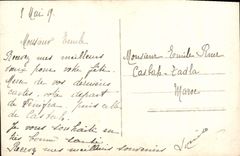 1 Mai 19.
Monsieur Emile
Recevez mes meilleurs
vœux pour votre fête.
Merci de vos dernières
cartes. votre départ
de Kénifra, puis celle
de Casbah.
Je vous souhaite en
très bonne santé
Recevez mes meilleurs souvenirs
Monsieur Emile
Casbah Tadla
Maroc